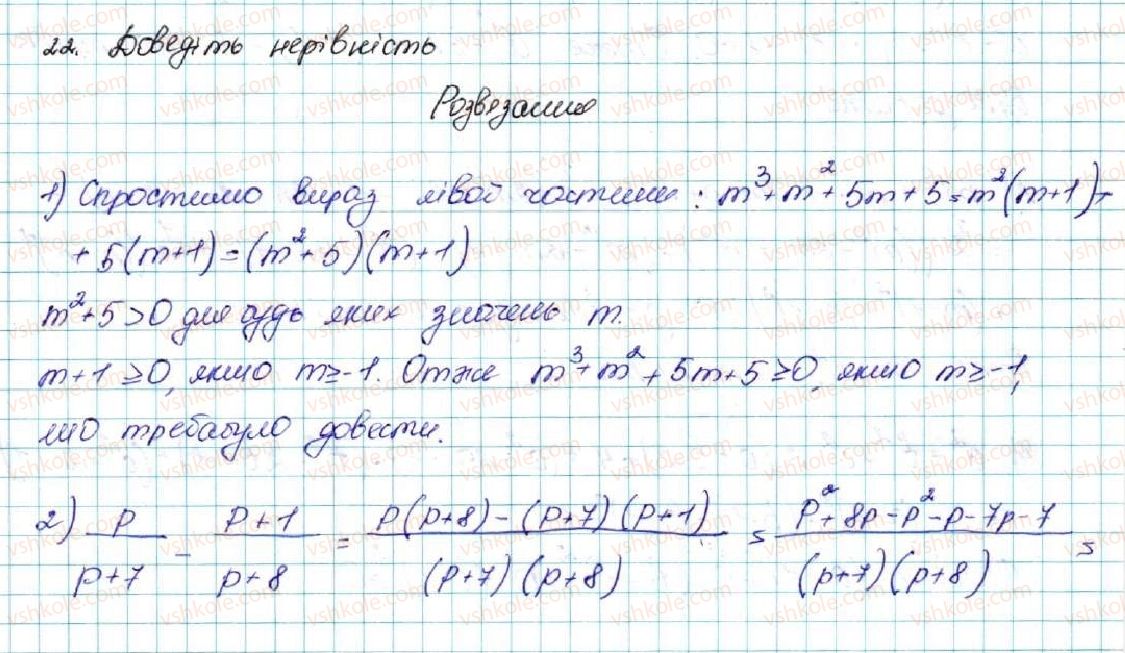 22. Доведіть нерівність
Розвязання
1) Спростимо вираз лівой частини: m³+m²+5m+5=m²(m+1)+
+5(m+1)=(m²+5)(m+1)
m²+5>0 для будь яких значень m.
m+1≥0, якшо m≥-1. Отже m³+m²+5m+5≥0, якшо m≥-1,
шо требабуло довести.
2) p/(p+7) - (p+1)/(p+8) = (p(p+8)-(p+7)(p+1))/((p+7)(p+8)) = (p²+8p-p²-p-7p-7)/((p+7)(p+8)) =